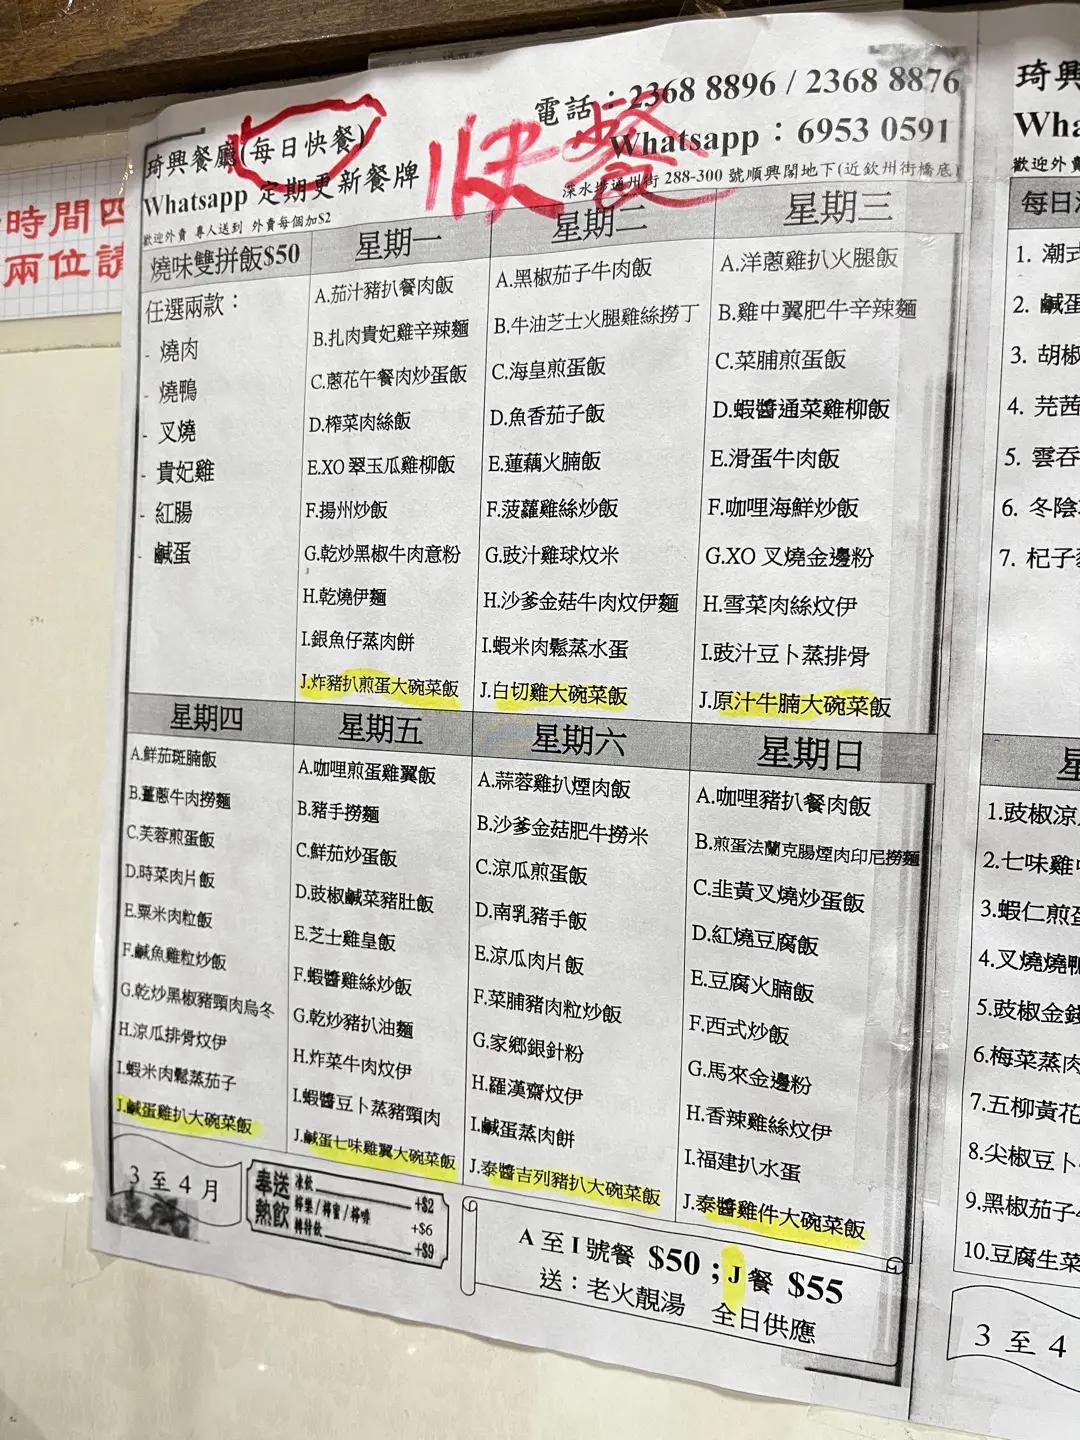 琦興餐廳(每日快餐)
Whatsapp 定期更新餐牌
歡迎外賣 專人送到 外賣每個加$2
快餐
電話：2368 8896 / 2368 8876
Whatsapp：6953 0591
深水埗通州街 288-300 號順興閣地下(近欽州街橋底)
燒味雙拼飯$50
任選兩款：
- 燒肉
- 燒鴨
- 叉燒
- 貴妃雞
- 紅腸
- 鹹蛋
星期一
A.茄汁豬扒餐肉飯
B.扎肉貴妃雞辛辣麵
C.蔥花午餐肉炒蛋飯
D.榨菜肉絲飯
E.XO 翠玉瓜雞柳飯
F.揚州炒飯
G.乾炒黑椒牛肉意粉
H.乾燒伊麵
I.銀魚仔蒸肉餅
J.炸豬扒煎蛋大碗菜飯
星期二
A.黑椒茄子牛肉飯
B.牛油芝士火腿雞絲撈丁
C.海皇煎蛋飯
D.魚香茄子飯
E.蓮藕火腩飯
F.菠蘿雞絲炒飯
G.豉汁雞球炆米
H.沙爹金菇牛肉炆伊麵
I.蝦米肉鬆蒸水蛋
J.白切雞大碗菜飯
星期三
A.洋蔥雞扒火腿飯
B.雞中翼肥牛辛辣麵
C.菜脯煎蛋飯
D.蝦醬通菜雞柳飯
E.滑蛋牛肉飯
F.咖哩海鮮炒飯
G.XO 叉燒金邊粉
H.雪菜肉絲炆伊
I.豉汁豆卜蒸排骨
J.原汁牛腩大碗菜飯
星期四
A.鮮茄斑腩飯
B.薑蔥牛肉撈麵
C.芙蓉煎蛋飯
D.時菜肉片飯
E.粟米肉粒飯
F.鹹魚雞粒炒飯
G.乾炒黑椒豬頸肉烏冬
H.涼瓜排骨炆伊
I.蝦米肉鬆蒸茄子
J.鹹蛋雞扒大碗菜飯
星期五
A.咖哩煎蛋雞翼飯
B.豬手撈麵
C.鮮茄炒蛋飯
D.豉椒鹹菜豬肚飯
E.芝士雞皇飯
F.蝦醬雞絲炒飯
G.乾炒豬扒油麵
H.炸菜牛肉炆伊
I.蝦醬豆卜蒸豬頸肉
J.鹹蛋七味雞翼大碗菜飯
星期六
A.蒜蓉雞扒煙肉飯
B.沙爹金菇肥牛撈米
C.涼瓜煎蛋飯
D.南乳豬手飯
E.涼瓜肉片飯
F.菜脯豬肉粒炒飯
G.家鄉銀針粉
H.羅漢齋炆伊
I.鹹蛋蒸肉餅
J.泰醬吉列豬扒大碗菜飯
星期日
A.咖哩豬扒餐肉飯
B.煎蛋法蘭克腸煙肉印尼撈麵
C.韭黃叉燒炒蛋飯
D.紅燒豆腐飯
E.豆腐火腩飯
F.西式炒飯
G.馬來金邊粉
H.香辣雞絲炆伊
I.福建扒水蛋
J.泰醬雞件大碗菜飯
3 至 4 月
奉送
熱飲
凍飲 +$2
檸樂/檸蜜/檸啡 +$6
轉特飲 +$9
A 至 I 號餐 $50；J 餐 $55
送：老火靚湯 全日供應
時間四
兩位請
琦興
Wha
歡迎外賣
每日
1. 潮式
2. 鹹蛋
3. 胡椒
4. 芫茜
5. 雲吞
6. 冬陰
7. 杞子
星
1.豉椒涼
2.七味雞
3.蝦仁煎蛋
4.叉燒燒鴨
5.豉椒金錢
6.梅菜蒸肉
7.五柳黃花
8.尖椒豆卜
9.黑椒茄子
10.豆腐生菜
3 至 4